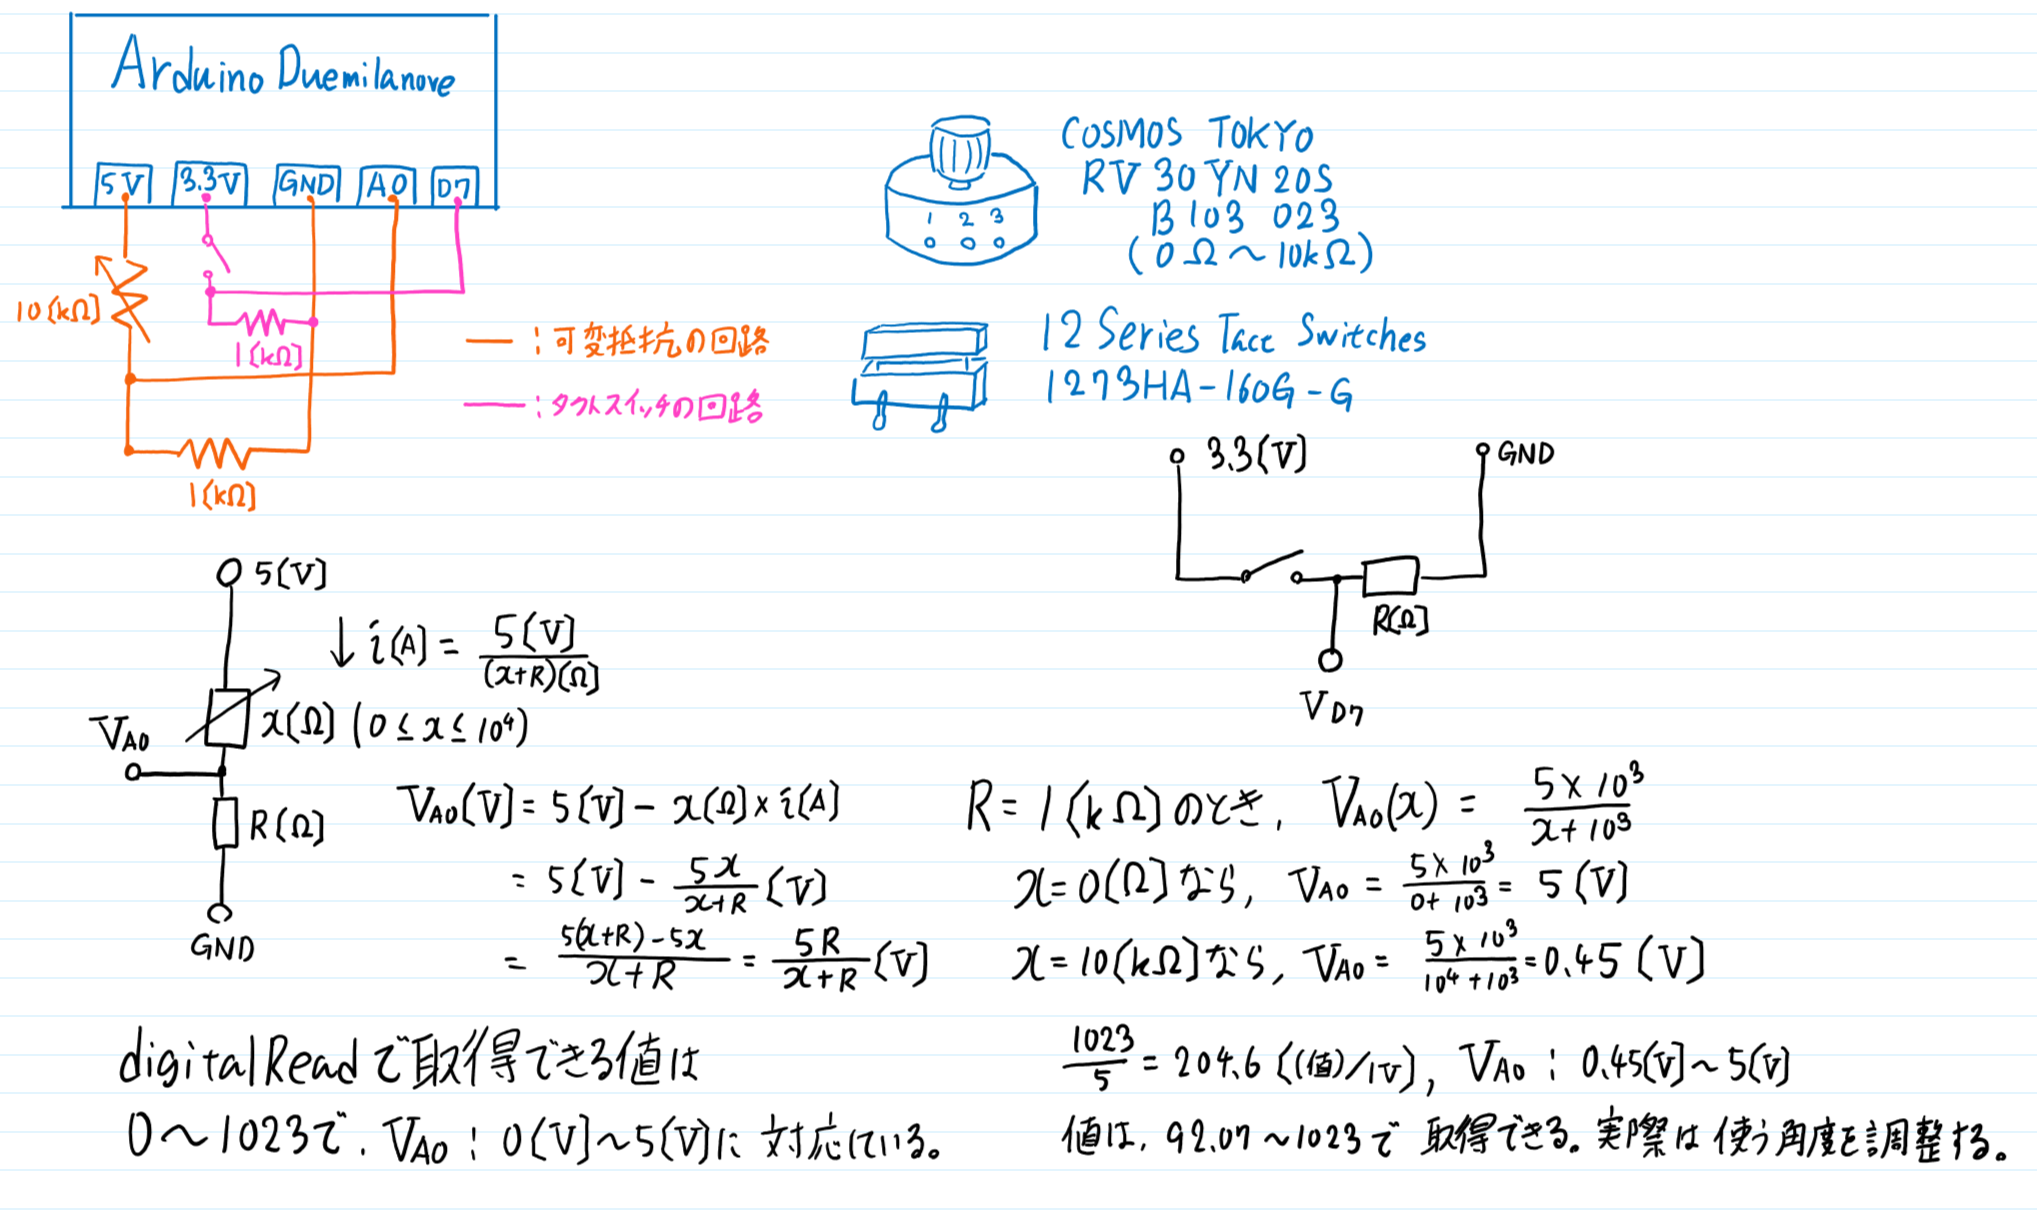 Arduino Duemilanove
5V 3.3V GND A0 D7
10[kΩ]
1[kΩ]
1[kΩ]
―:可変抵抗の回路
―:タクトスイッチの回路
COSMOS TOKYO
RV 30 YN 20S
B 103 023
(0Ω～10kΩ)
1 2 3
12 Series Tact Switches
1273HA-160G-G
3.3[V] GND
R[Ω]
VD7
5[V]
↓i[A] = 5[V]/(x+R)[Ω]
x[Ω] (0≤x≤10⁴)
VA0
R[Ω]
GND
VA0[V] = 5[V] - x[Ω]×i[A]
= 5[V] - 5x/(x+R) [V]
= (5(x+R)-5x)/(x+R) = 5R/(x+R) [V]
R=1[kΩ]のとき, VA0(x) = 5×10³/(x+10³)
x=0[Ω]なら, VA0 = 5×10³/(0+10³) = 5[V]
x=10[kΩ]なら, VA0 = 5×10³/(10⁴+10³) = 0.45[V]
digitalReadで取得できる値は
0～1023で, VA0: 0[V]～5[V]に対応している。
1023/5 = 204.6 [(値)/1V], VA0: 0.45[V]～5[V]
値は, 92.07～1023で取得できる。実際は使う角度を調整する。